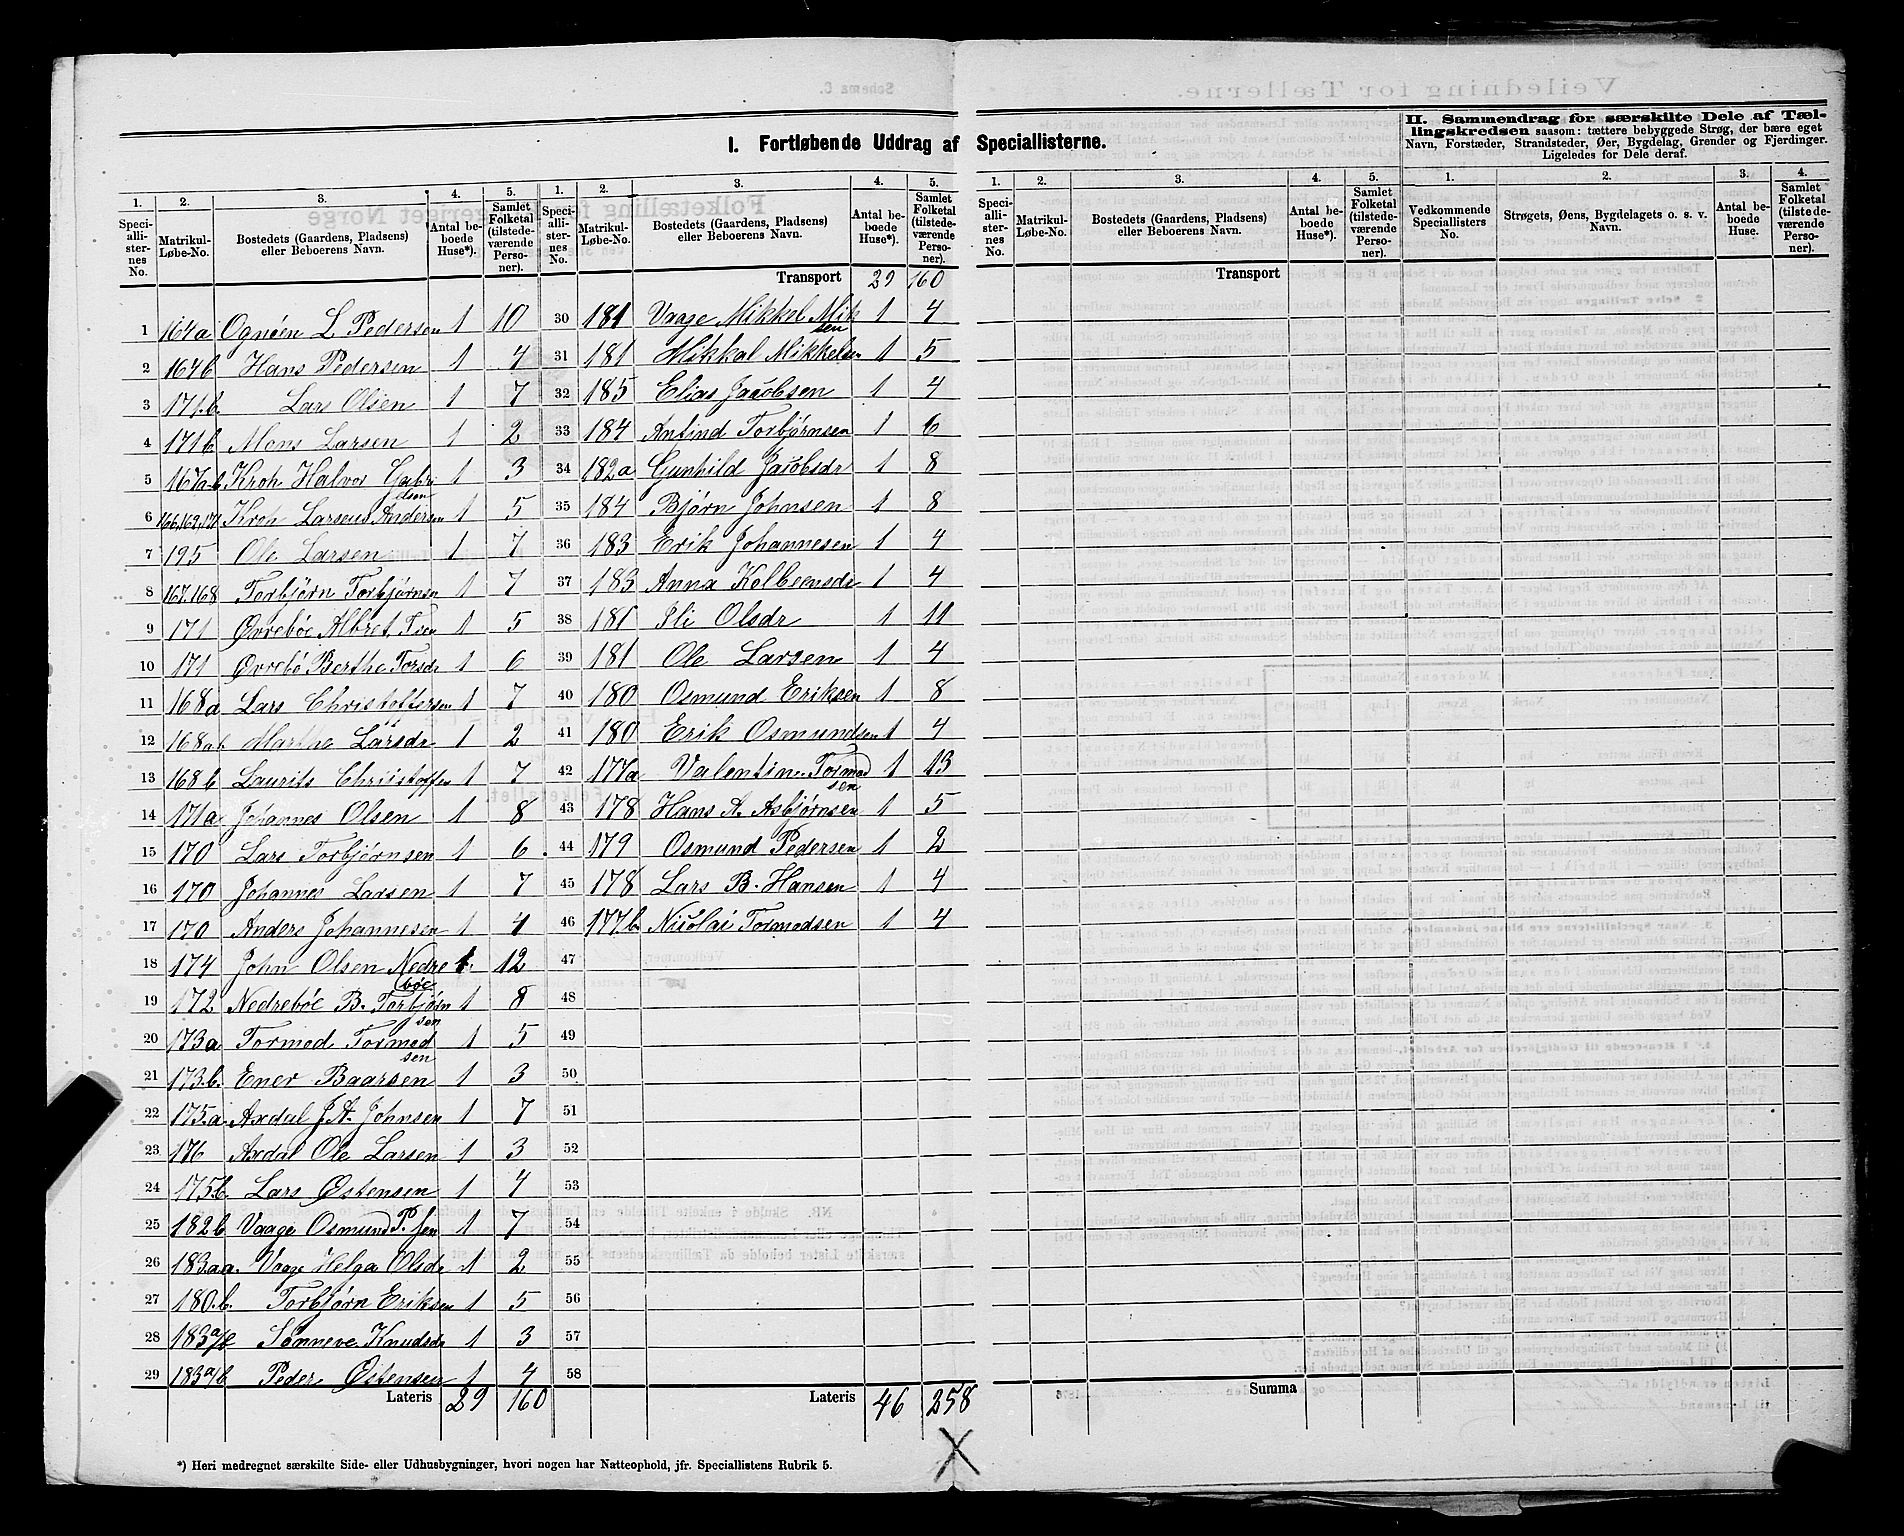 I. Fortløbende Uddrag af Speciallisterne.
II. Sammendrag for særskilte Dele af Tæl-
lingskredsen saasom: tættere bebyggede Strøg, der bære eget
Navn, Forstæder, Strandsteder, Øer, Bygdelag, Grender og Fjerdinger.
Ligeledes for Dele deraf.
1. 2. 3. 4. 5. 1. 2. 3. 4. 5. 1. 2. 3. 4. 5. 1. 2. 3. 4.
Speciallisternes No. Matrikul-Løbe-No. Bostedets (Gaardens, Pladsens) eller Beboerens Navn. Antal beboede Huse*). Samlet Folketal (tilstedeværende Personer).
Speciallisternes No. Matrikul-Løbe-No. Bostedets (Gaardens, Pladsens) eller Beboerens Navn. Antal beboede Huse*). Samlet Folketal (tilstedeværende Personer).
Speciallisternes No. Matrikul-Løbe-No. Bostedets (Gaardens, Pladsens) eller Beboerens Navn. Antal beboede Huse*). Samlet Folketal (tilstedeværende Personer).
Vedkommende Speciallisters No. Strøgets, Øens, Bygdelagets o. s. v. Navn. Antal beboede Huse. Samlet Folketal (tilstedeværende Personer).
1 164a Ognøen L Pedersen 1 10
2 164b Hans Pedersen 1 4
3 171.b. Lars Olsen 1 7
4 171b Mons Larsen 1 2
5 167a.b Kroh Halvor Gabrielsen 1 3
6 166,169,171 Kroh Larseus Andersen 1 5
7 195 Ole Larsen 1 7
8 167.168 Torbjørn Torbjørnsen 1 7
9 171 Øvrebøe Albret Tsen 1 5
10 171 Øvrebö Berthe Torsdr 1 6
11 168a Lars Christoffersen 1 7
12 168ab Marthe Larsdr 1 2
13 168b Laurits Christoffen 1 7
14 171a Johannes Olsen 1 8
15 170 Lars Torbjørnsen 1 6
16 170 Johannes Larsen 1 7
17 170 Anders Johannesen 1 4
18 174 John Olsen Nedrebøe 1. 12
19 172 Nedrebøe B. Torbjørnsen 1 8
20 173a Tormod Tormodsen 1 5
21 173.b. Ener Baarsen 1 3
22 175.a. Axdal J.A. Johnsen 1 7
23 176 Axdal Ole Larsen 1 3
24 175.b. Lars Østensen 1 4
25 182b Vaage Osmund P. sen 1 7
26 183.aa. Vaage Helga Olsdr 1 2
27 180.b. Torbjørn Eriksen 1 5
28 183 Sønneve Knudsdr 1 3
29 183a/b Peder Østensen 1 4
Lateris 29 160
Transport 29 160
30 181 Vaage Mikkel Miksen 1 4
31 181 Mikkal Mikkelsen 1 5
32 185 Elias Jacobsen 1 4
33 184 Antind Torbjørnsen 1 6
34 182a Gunhild Jacobsdr 1 8
35 184 Bjørn Johnsen 1 8
36 183 Erik Johannesen 1 4
37 183 Anna Kolbeensdr 1 4
38 181 Sli Olsdr 1 11
39 181 Ole Larsen 1 4
40 180 Osmund Eriksen 1 8
41 180 Erik Osmundsen 1 4
42 177a Valentin Tormodsen 1 13
43 178 Hans A. Asbjørnsen 1 5
44 179 Osmund Pedersen 1 2
45 178 Lars B. Hansen 1 4
46 177.b. Nicolai Tormodsen 1 4
47
48
49
50
51
52
53
54
55
56
57
58
Lateris 46 258
Transport
Summa
*) Heri medregnet særskilte Side- eller Udhusbygninger, hvori nogen har Natteophold, jfr. Speciallistens Rubrik 5.